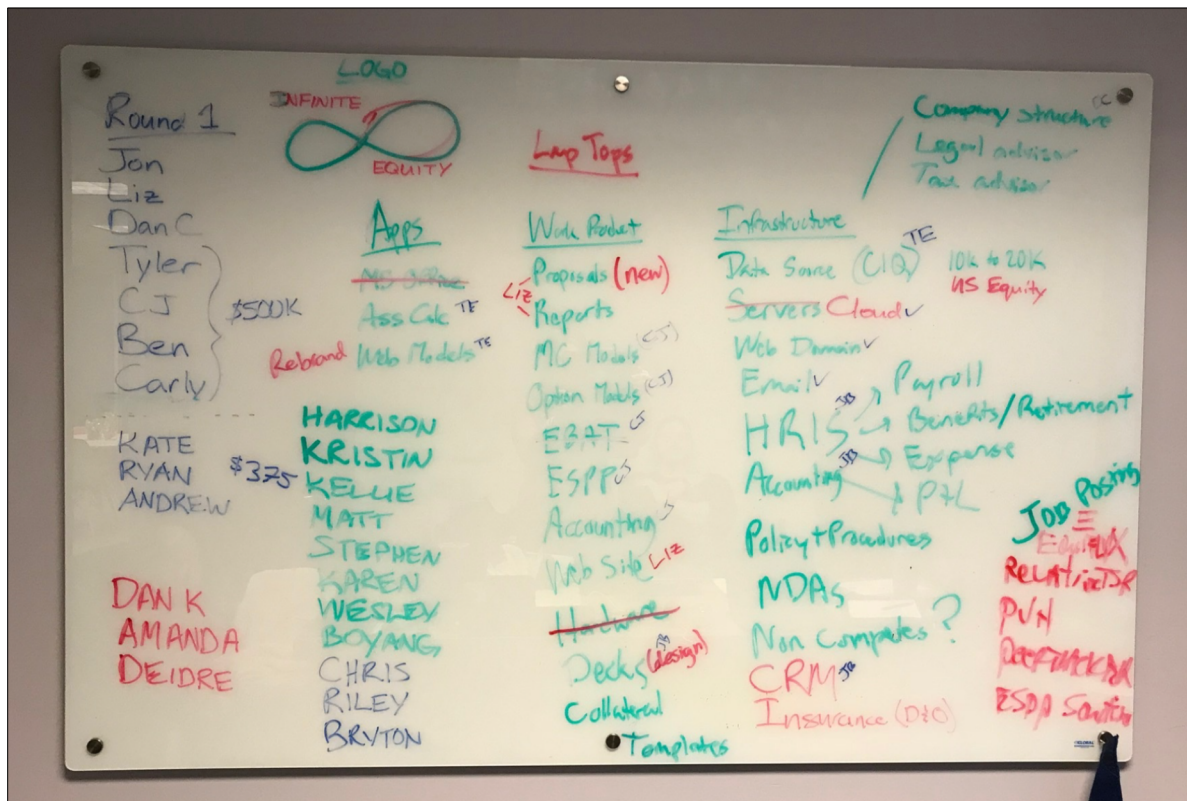 LOGO
INFINITE
EQUITY
Round 1
Jon
Liz
Dan C
Tyler
CJ
Ben
Carly
$500K
KATE
RYAN
ANDREW
$375
DAN K
AMANDA
DEIDRE
Apps
MS Office
Ass Calc TE
Rebrand Web Models TE
HARRISON
KRISTIN
KELLIE
MATT
STEPHEN
KAREN
WESLEY
BOYANG
CHRIS
RILEY
BRYTON
Lap Tops
Work Product
LIZ
Proposals (new)
Reports
MC Models (CJ)
Option Models (CJ)
EBAT CJ
ESPP CJ
Accounting
Web Site LIZ
Hardware
Decks (design)
Collateral
Templates
Company structure
Legal advisor
Tax advisor
Infrastructure
Data Source (CIQ) TE 10K to 20K
US Equity
Servers Cloud ✓
Web Domain ✓
Email ✓
HRIS JB
Payroll
Benefits/Retirement
Accounting JB
Expense
P+L
Policy + Procedures
NDAs
Non Competes?
CRM JB
Insurance (D&O)
Job Posting
RelativeTSR
ESPP
GLOBAL